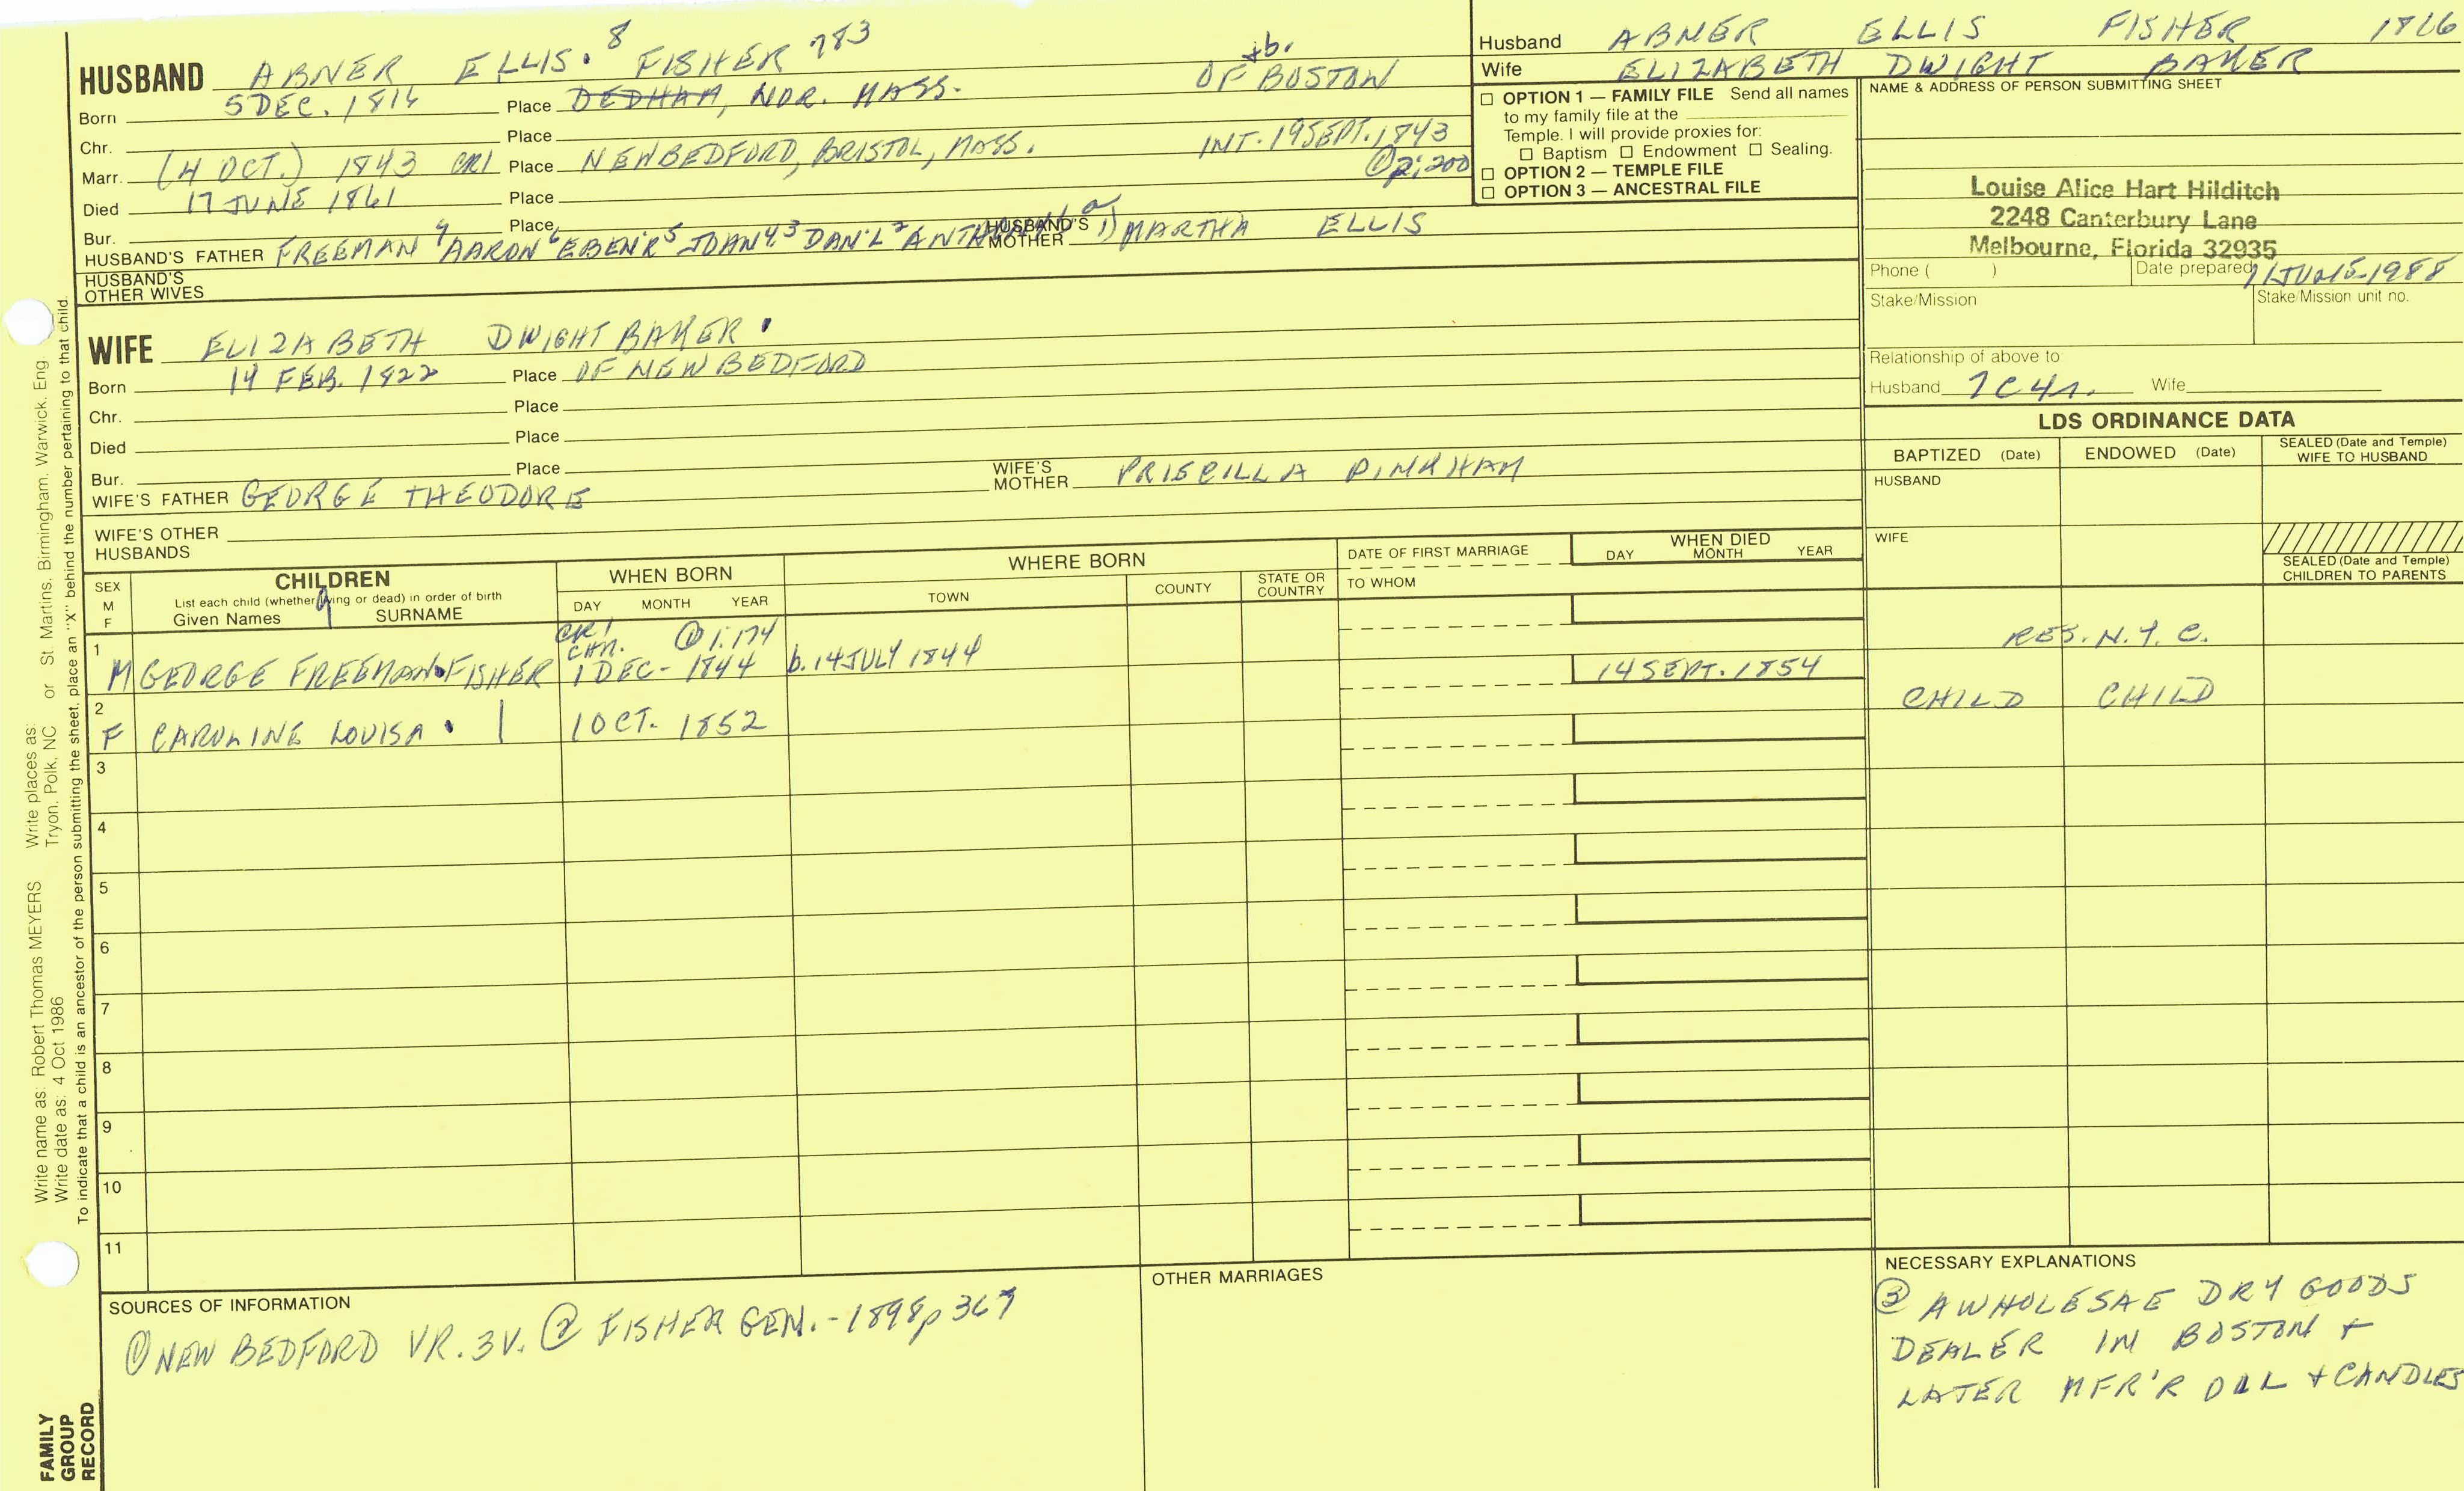 HUSBAND ABNER ELLIS. 8 FISHER 783
Born 5 DEC. 1816 Place DEDHAM, NOR. MASS. +b. OF BOSTON
Chr. Place
Marr. (4 OCT.) 1843 CR1 Place NEW BEDFORD, BRISTOL, MASS. INT. 19 SEPT. 1843
① 2:200
Died 17 JUNE 1861 Place
Bur. Place
HUSBAND'S FATHER FREEMAN 7 AARON 6 EBEN'R 5 4 3 DAN'L 2 HUSBAND'S MOTHER 1) MARTHA ELLIS
HUSBAND'S OTHER WIVES
WIFE ELIZABETH DWIGHT BAKER.
Born 14 FEB. 1822 Place OF NEW BEDFORD
Chr. Place
Died Place
Bur. Place
WIFE'S FATHER GEORGE THEODORE WIFE'S MOTHER PRISCILLA PINKHAM
WIFE'S OTHER HUSBANDS
Husband ABNER ELLIS FISHER 1816
Wife ELIZABETH DWIGHT BAKER
□ OPTION 1 — FAMILY FILE Send all names
to my family file at the
Temple. I will provide proxies for:
□ Baptism □ Endowment □ Sealing.
□ OPTION 2 — TEMPLE FILE
□ OPTION 3 — ANCESTRAL FILE
NAME & ADDRESS OF PERSON SUBMITTING SHEET
Louise Alice Hart Hilditch
2248 Canterbury Lane
Melbourne, Florida 32935
Phone ( ) Date prepared 1988
Stake/Mission Stake/Mission unit no.
Relationship of above to
Husband 7C4r. Wife
LDS ORDINANCE DATA
BAPTIZED (Date) ENDOWED (Date) SEALED (Date and Temple) WIFE TO HUSBAND
HUSBAND
WIFE
SEALED (Date and Temple) CHILDREN TO PARENTS
SEX M F
CHILDREN
List each child (whether living or dead) in order of birth
Given Names SURNAME
WHEN BORN
DAY MONTH YEAR
WHERE BORN
TOWN COUNTY STATE OR COUNTRY
DATE OF FIRST MARRIAGE
TO WHOM
WHEN DIED
DAY MONTH YEAR
CR1 CHR. ① 1:174
1 M GEORGE FREEMAN. FISHER 1 DEC - 1844 b. 14 JULY 1844 14 SEPT. 1854
RES. N.Y.C.
2 F CAROLINE LOUISA. | 1 OCT. 1852
CHILD CHILD
3
4
5
6
7
8
9
10
11
SOURCES OF INFORMATION
① NEW BEDFORD VR. 3V. ② FISHER GEN. - 1898 p 367
OTHER MARRIAGES
NECESSARY EXPLANATIONS
② A WHOLESAE DRY GOODS
DEALER IN BOSTON +
LATER MFR'R OIL + CANDLES
Write name as: Robert Thomas MEYERS Write places as: 
Write date as: 4 Oct 1986 Tryon, Polk, NC or St. Martins, Birmingham, Warwick, Eng
To indicate that a child is an ancestor of the person submitting the sheet, place an "X" behind the number pertaining to that child.
FAMILY
GROUP
RECORD